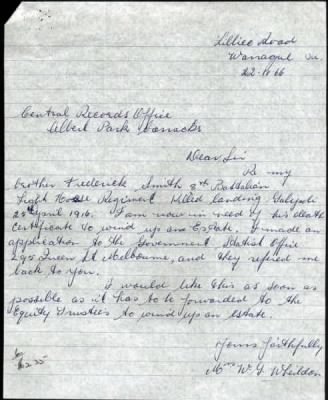 Lillies Road
Warragul Vic
22-11-66
Central Records Office
Albert Park Barracks
Dear Sir
Re my
brother Frederick Smith 8th Battalion
Light Horse Regiment Killed landing Galipoli
25th April 1916. I am now in need of his death
certificate to wind up an Estate. I made an
application to the Government Statist Office
295 Queen St Melbourne, and they refered me
back to you.
I would like this as soon as
possible as it has to be forwarded to the
Equity Trustees to wind up an estate.
Yours Faithfully
Mrs W. G Wheildon